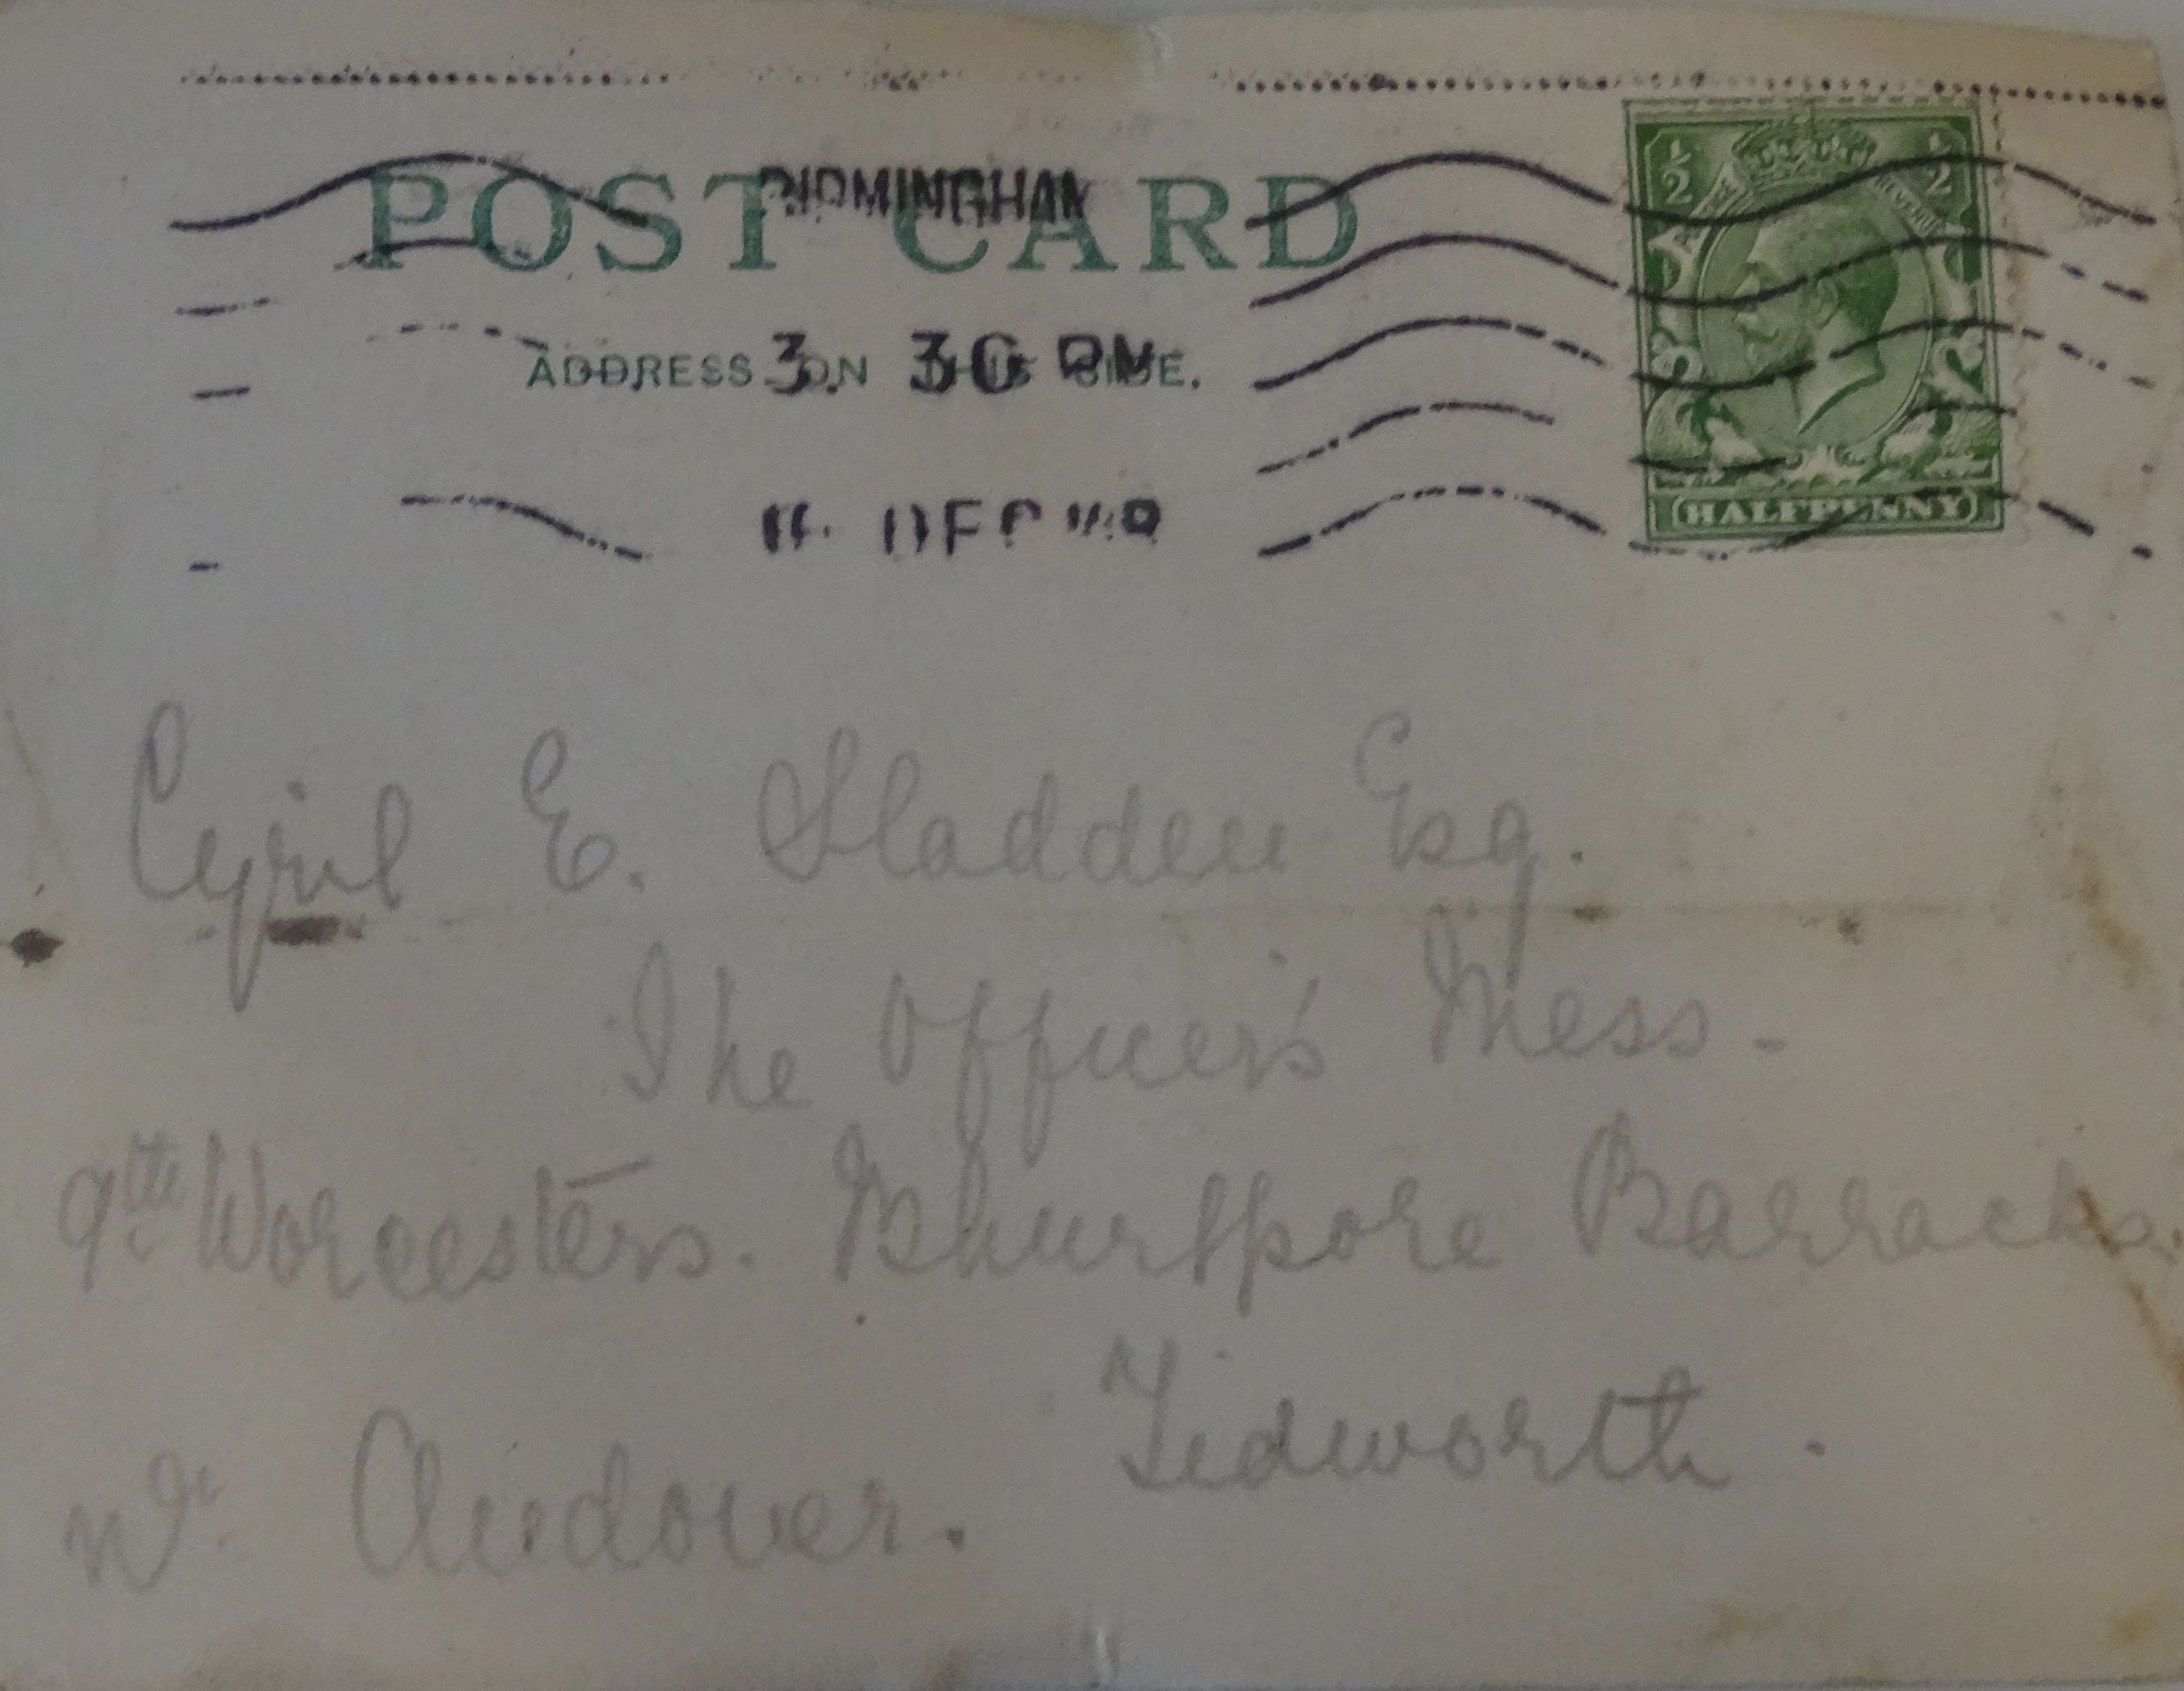 POST CARD
BIRMINGHAM
ADDRESS ON THIS SIDE.
3. 30 PM
DEC
½ ½
HALFPENNY
Cyril E. Sladden Esq.
The Officer's Mess -
9th Worcesters. Bhurtpore Barracks.
Tidworth.
Nr. Andover.